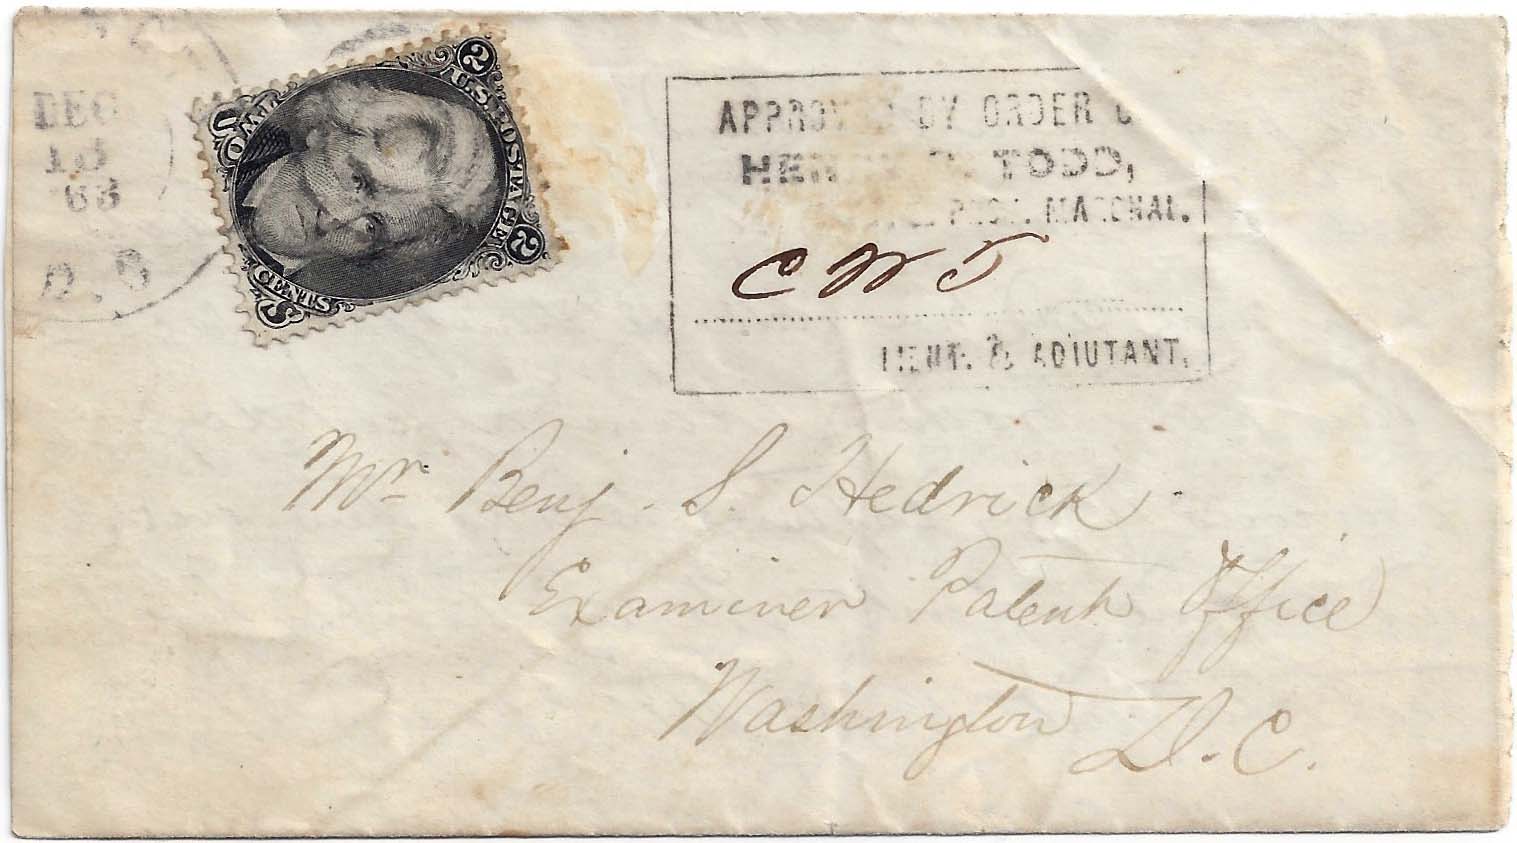 DEC
18
'63
D. C
U.S. POSTAGE
2 2
TWO CENTS
U S
APPROVED BY ORDER O
HENRY TODD,
PROV. MARSHAL.
C W T
LIEUT. & ADJUTANT.
Mr Benj. S. Hedrick
Examiner Patent Office
Washington D. C.